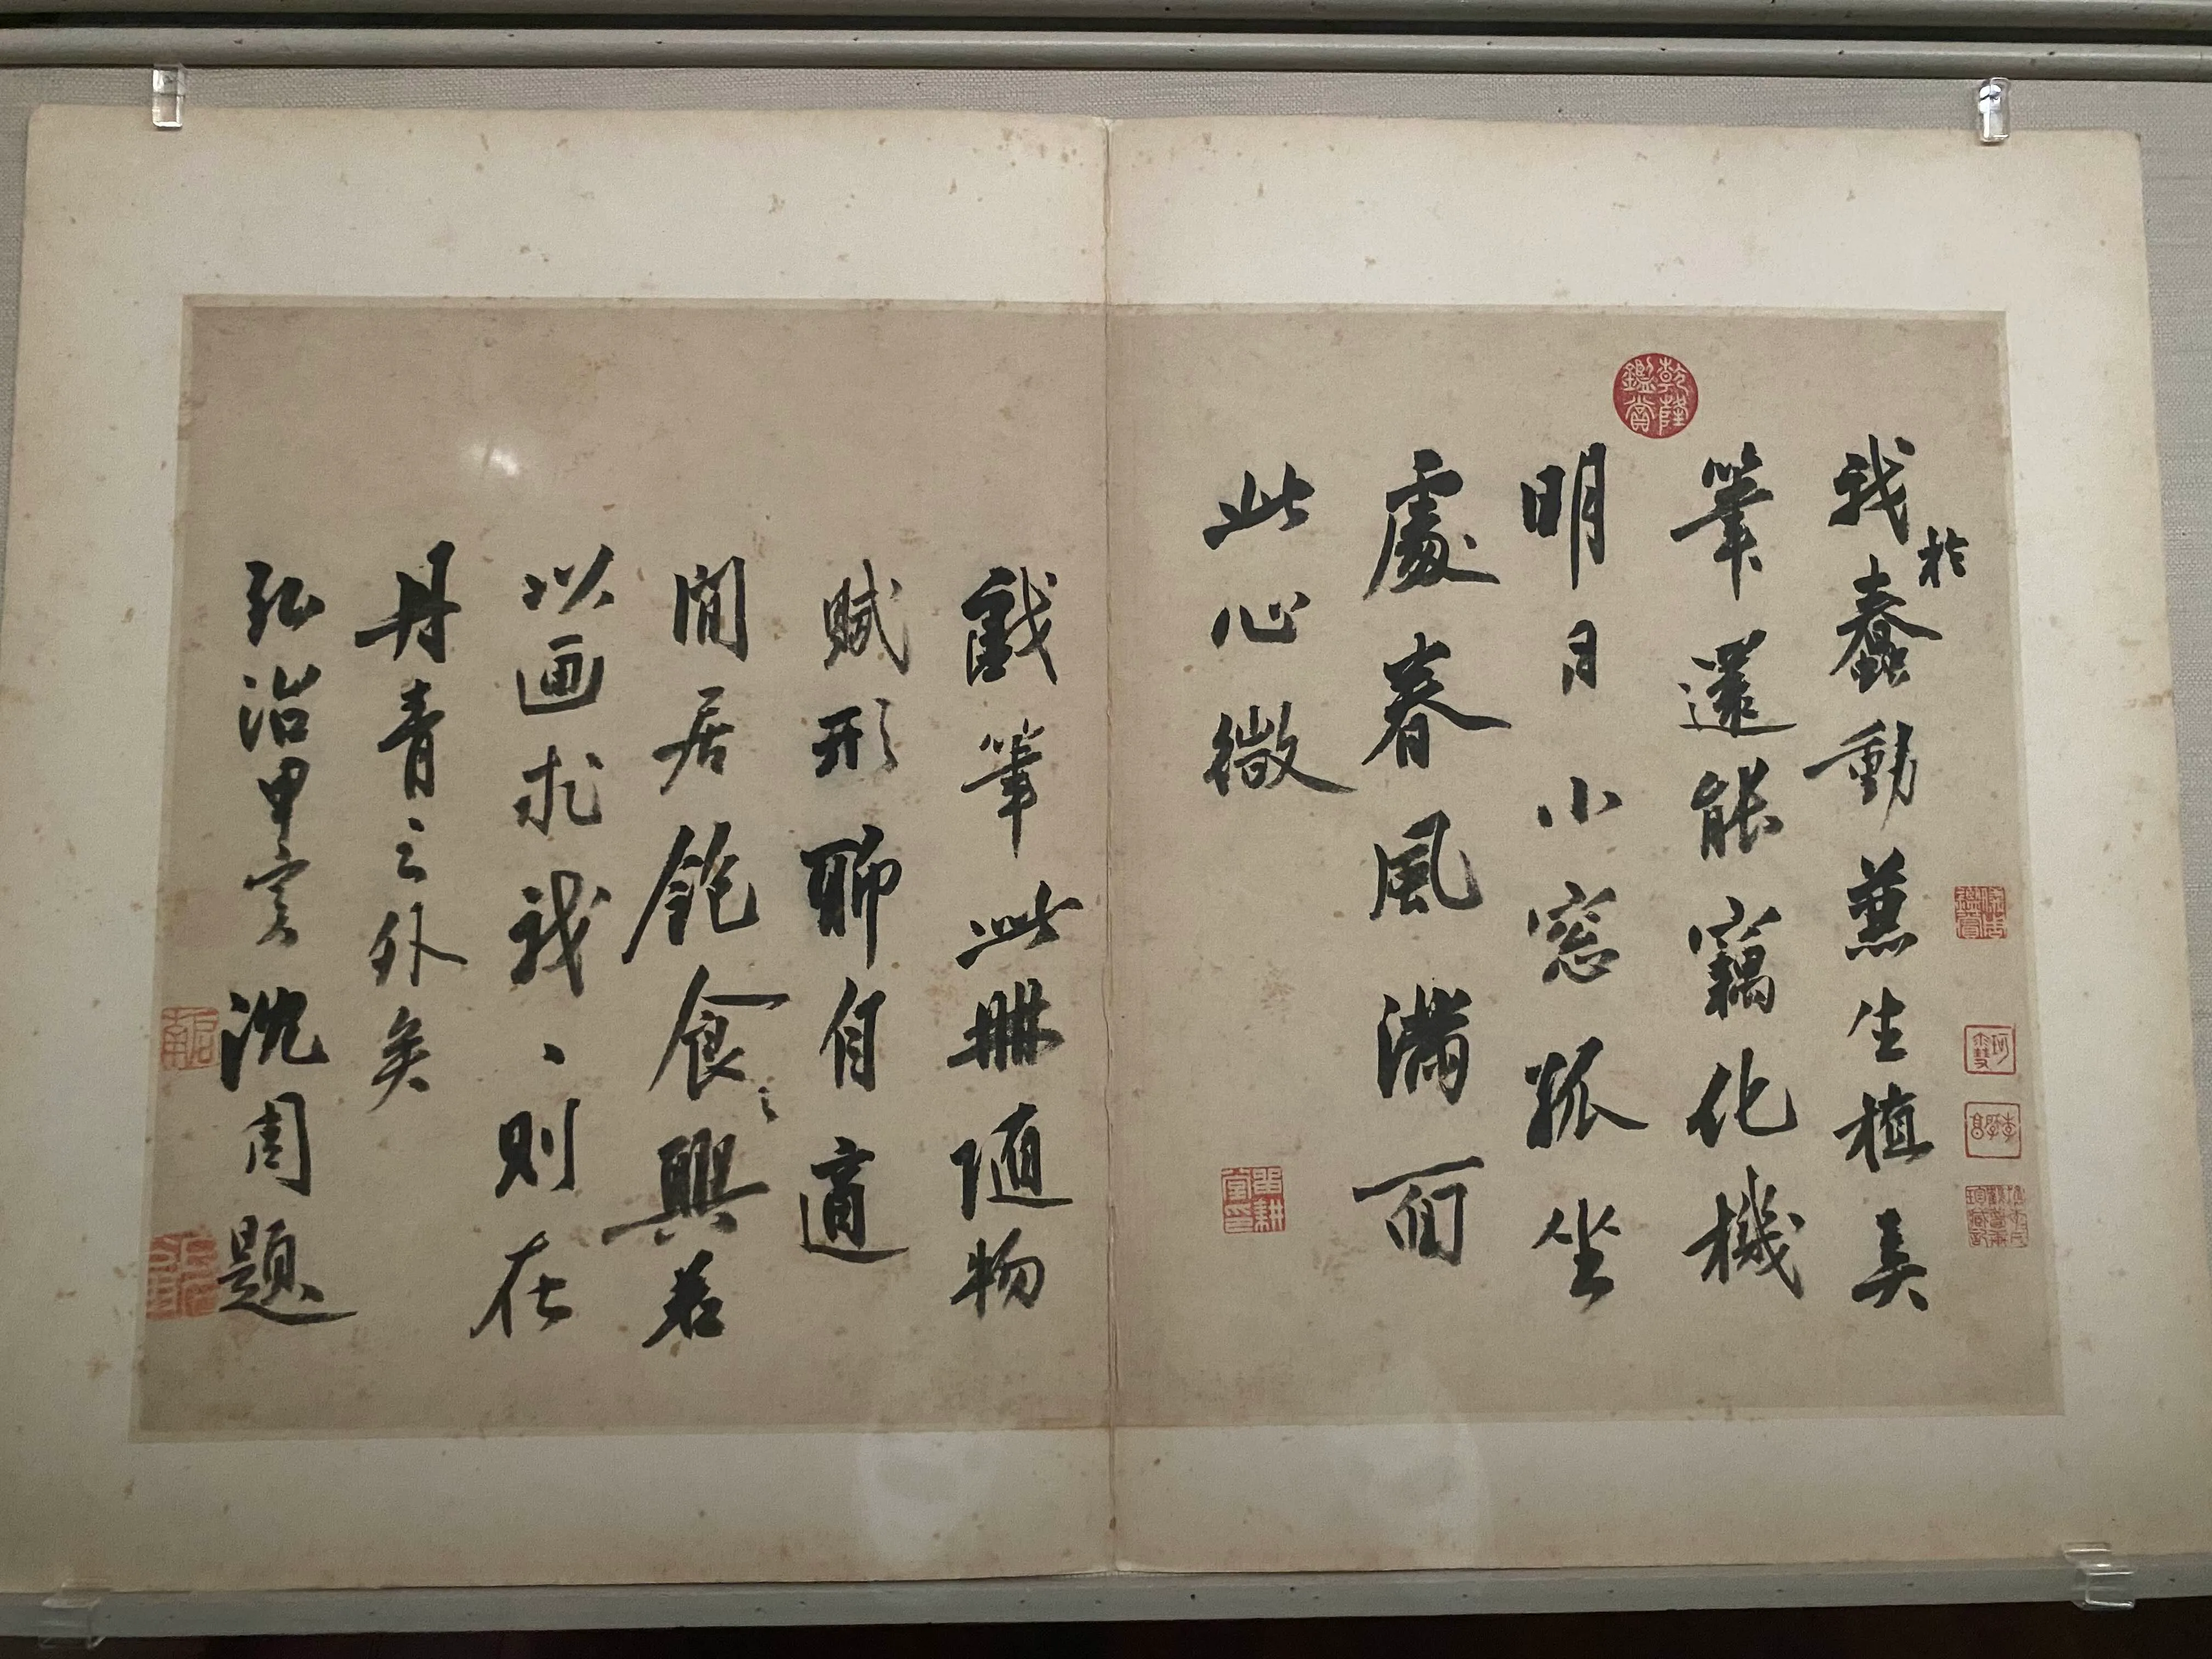 我於蠢動兼生植矣
筆還能竊化機
明日小窓孤坐
處春風滿面
此心微
戲筆此冊隨物
賦形聊自適
閒居飽食之興若
以画求我、則在
丹青之外矣
弘治甲寅沈周題
乾隆
鑑賞